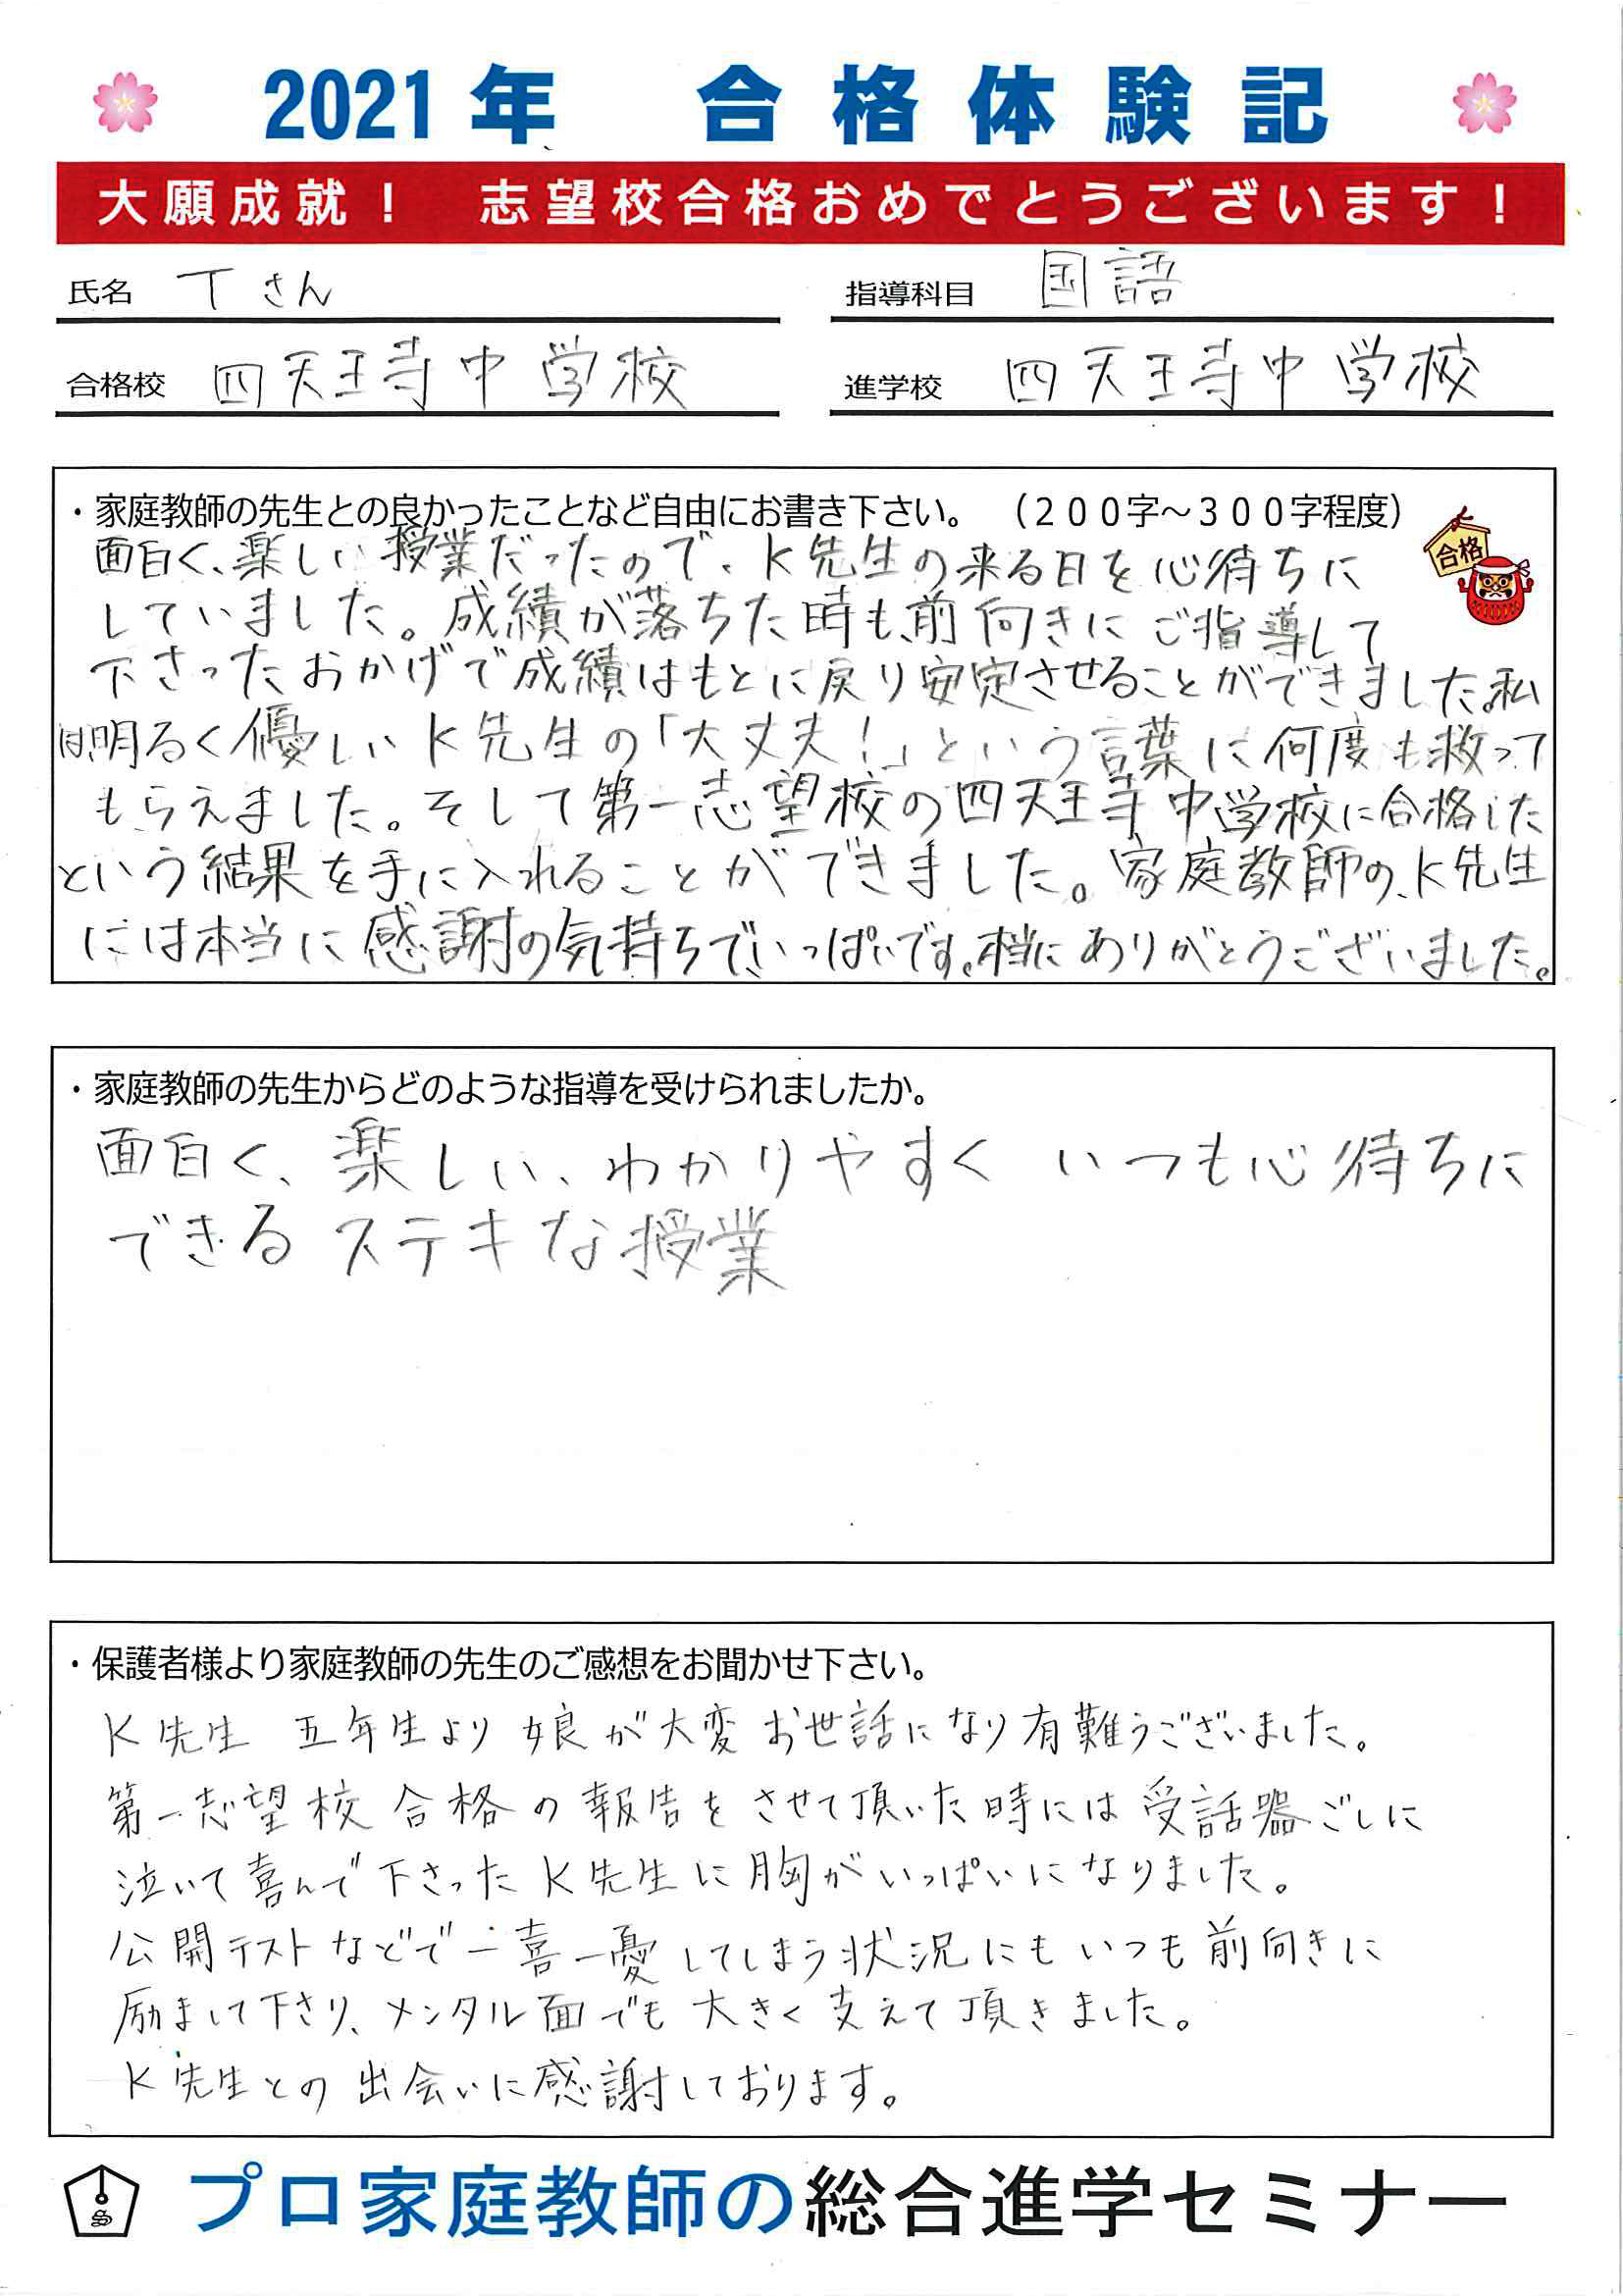 2021年 合格体験記
大願成就! 志望校合格おめでとうございます!
氏名 Tさん 指導科目 国語
合格校 四天王寺中学校 進学校 四天王寺中学校
・家庭教師の先生との良かったことなど自由にお書き下さい。 (200字~300字程度)
合格
面白く、楽しい授業だったので、K先生の来る日を心待ちに
していました。成績が落ちた時も、前向きにご指導して
下さったおかげで成績はもとに戻り安定させることができました。私
は、明るく優しいK先生の「大丈夫!」という言葉に何度も救って
もらえました。そして第一志望校の四天王寺中学校に合格した
という結果を手に入れることができました。家庭教師の、K先生
には本当に感謝の気持ちでいっぱいです。本当にありがとうございました。
・家庭教師の先生からどのような指導を受けられましたか。
面白く、楽しい、わかりやすく いつも心待ちに
できる ステキな授業
・保護者様より家庭教師の先生のご感想をお聞かせ下さい。
K先生 五年生より娘が大変お世話になり有難うございました。
第一志望校合格の報告をさせて頂いた時には受話器ごしに
泣いて喜んで下さったK先生に胸がいっぱいになりました。
公開テストなどで一喜一憂してしまう状況にもいつも前向きに
励まして下さり、メンタル面でも大きく支えて頂きました。
K先生との出会いに感謝しております。
S プロ家庭教師の総合進学セミナー